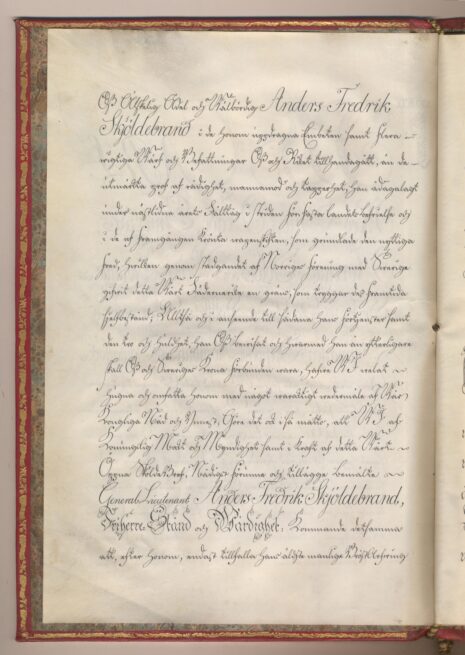 Oss Älskelig Ädel och Wälbördig Anders Fredrik
Skjöldebrand i de honom uppdragna Embeten samt flera
wigtiga Wärf och Befattningar Oss och Riket tillhandagått, än de
utmärkta prof af rådighet, mannamod och tapperhet, han ådagalagt
under nästledne årets Fälttåg i striden för fasta landets befrielse och
i de af framgången krönta wapenskiften, som grundlade den nyttiga
fred, hwilken genom stadgandet af Norriges förening med Swerige
gifwit detta Wårt Fädernerike en gräns, som tryggar dess framtida
sjelfbestånd; Alltså och i anseende till sådana Hans förtjenster samt
den tro och huldhet, han Oss bewisat och hwarmed Han än ytterligare
skall Oss och Sweriges Krona förbunden wara, hafwe Wi welat
hugna och omfatta honom med något waraktigt wedermäle af Wår
Kongliga Nåd och Ynnest, Göre det ock i så måtto, att Wi af
Konungslig Makt och Myndighet samt i kraft af detta Wårt
Öppna Sköldebref, Nådigst förunne och tillägge bemälte
General Lieutenant Anders Fredrik Skjöldebrand,
Friherre Stånd och Wärdighet, kommande detsamma
att, efter Honom, endast tillfalla Hans äldste manlige Bröst Arfwinge